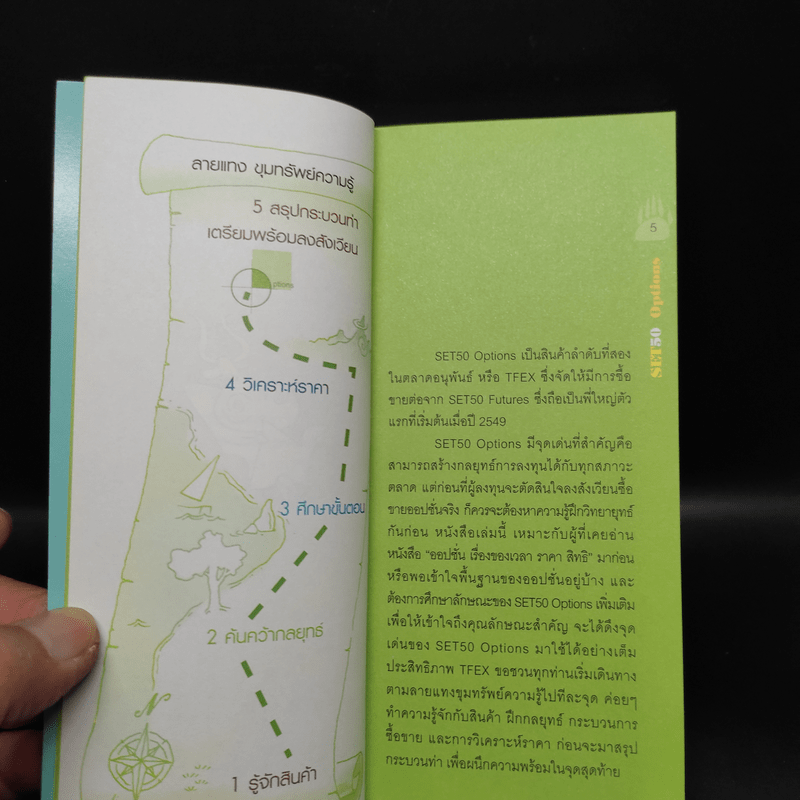 ลายแทง ขุมทรัพย์ความรู้
5 สรุปกระบวนท่า
เตรียมพร้อมลงสังเวียน
ptions
4 วิเคราะห์ราคา
3 ศึกษาขั้นตอน
2 ค้นคว้ากลยุทธ์
N
1 รู้จักสินค้า
5
SET50 Options
SET50 Options เป็นสินค้าลำดับที่สอง
ในตลาดอนุพันธ์ หรือ TFEX ซึ่งจัดให้มีการซื้อ
ขายต่อจาก SET50 Futures ซึ่งถือเป็นพี่ใหญ่ตัว
แรกที่เริ่มต้นเมื่อปี 2549
SET50 Options มีจุดเด่นที่สำคัญคือ
สามารถสร้างกลยุทธ์การลงทุนได้กับทุกสภาวะ
ตลาด แต่ก่อนที่ผู้ลงทุนจะตัดสินใจลงสังเวียนซื้อ
ขายออปชั่นจริง ก็ควรจะต้องหาความรู้ฝึกวิทยายุทธ์
กันก่อน หนังสือเล่มนี้ เหมาะกับผู้ที่เคยอ่าน
หนังสือ "ออปชั่น เรื่องของเวลา ราคา สิทธิ" มาก่อน
หรือพอเข้าใจพื้นฐานของออปชั่นอยู่บ้าง และ
ต้องการศึกษาลักษณะของ SET50 Options เพิ่มเติม
เพื่อให้เข้าใจถึงคุณลักษณะสำคัญ จะได้ดึงจุด
เด่นของ SET50 Options มาใช้ได้อย่างเต็ม
ประสิทธิภาพ TFEX ขอชวนทุกท่านเริ่มเดินทาง
ตามลายแทงขุมทรัพย์ความรู้ไปทีละจุด ค่อยๆ
ทำความรู้จักกับสินค้า ฝึกกลยุทธ์ กระบวนการ
ซื้อขาย และการวิเคราะห์ราคา ก่อนจะมาสรุป
กระบวนท่า เพื่อผนึกความพร้อมในจุดสุดท้าย